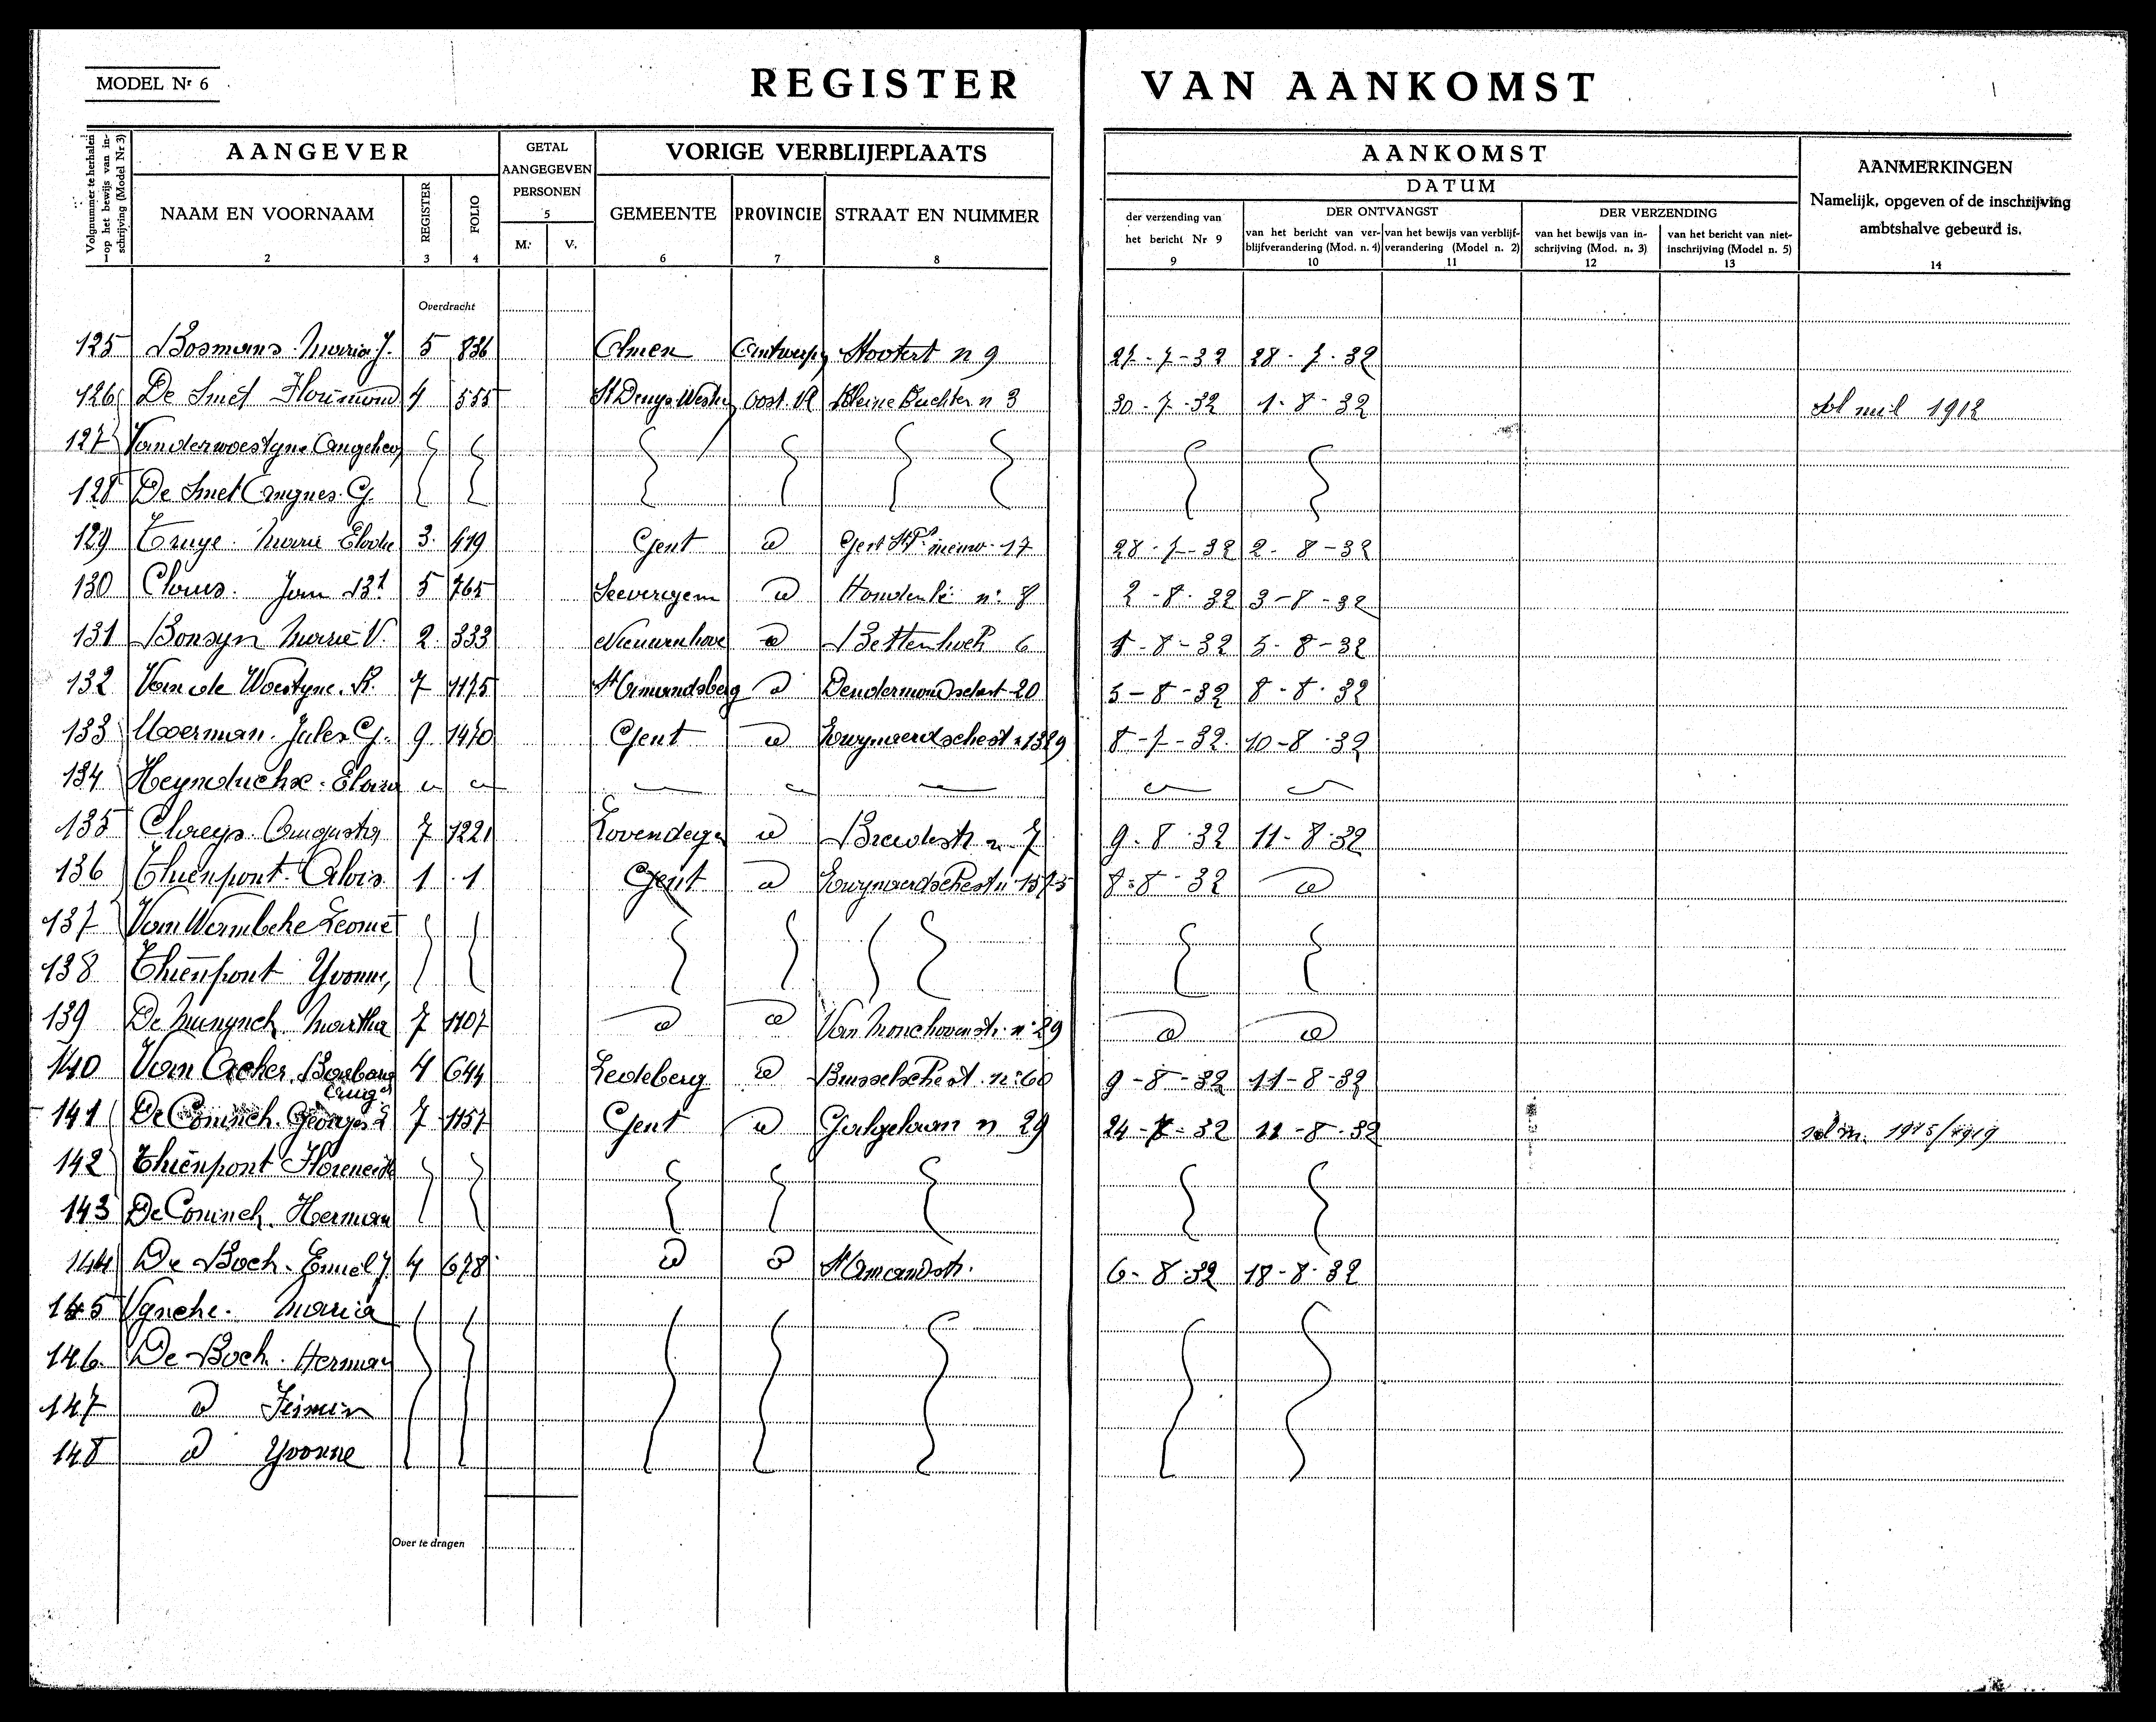 MODEL Nr 6
REGISTER VAN AANKOMST
Volgnummer te herhalen op het bewijs van inschrijving (Model Nr 3)
AANGEVER
GETAL AANGEGEVEN PERSONEN
VORIGE VERBLIJFPLAATS
AANKOMST
AANMERKINGEN
Namelijk, opgeven of de inschrijving ambtshalve gebeurd is.
DATUM
NAAM EN VOORNAAM
REGISTER
FOLIO
5
M. V.
GEMEENTE
PROVINCIE
STRAAT EN NUMMER
der verzending van het bericht Nr 9
DER ONTVANGST
van het bericht van verblijfverandering (Mod. n. 4)
van het bewijs van verblijfverandering (Model n. 2)
DER VERZENDING
van het bewijs van inschrijving (Mod. n. 3)
van het bericht van niet-inschrijving (Model n. 5)
1 2 3 4 6 7 8 9 10 11 12 13 14
Overdracht
125 Bosmans Maria J. 5 836 Olmen Antwerpen n 9 27-7-32 28-7-32
126 De Smet Florimond 4 555 St Denys Westr Oost. Vl Kleine Buchten n 3 30-7-32 1-8-32 mil 1912
127 Vanderwoestyne
128 De Smet Agnes G.
129 Truye Marie Elodie 3 419 Gent d 17 28-7-32 2-8-32
130 Claus Jan Bt 5 765 Seevergem d n: 8 2-8-32 3-8-32
131 Bonsyn Marie V. 2 333 Nieuwenhove d 6 1-8-32 5-8-32
132 Van de Woestyne R. 7 1175 St Amandsberg d Dendermondschest 20 5-8-32 8-8-32
133 Moerman Jules G. 9 1470 Gent d Zwynaerdschest n 1329 8-7-32 10-8-32
134 Heynduckx
135 Claeys Augusta 7 1221 Lovendegem d n 7 9-8-32 11-8-32
136 Thienpont Alois 1 1 Gent d Zwynaerdschest n 1573 8-8-32 d
137 Van Wambeke Leonie
138 Thienpont Yvonne
139 De Munynck Martha 7 1107 d d n: 29 d d
140 Van Acker Barbara 4 644 Ledeberg d Brusselschest n: 60 9-8-32 11-8-32
141 De Coninck Georges Aug. 7 1157 Gent d n 29 24-7-32 11-8-32
142 Thienpont
143 De Coninck Herman
144 De Bock Emiel J 4 678 d d St Amandstr. 6-8-32 18-8-32
145 Maria
146 De Bock Herman
147 d
148 d Yvonne
Over te dragen